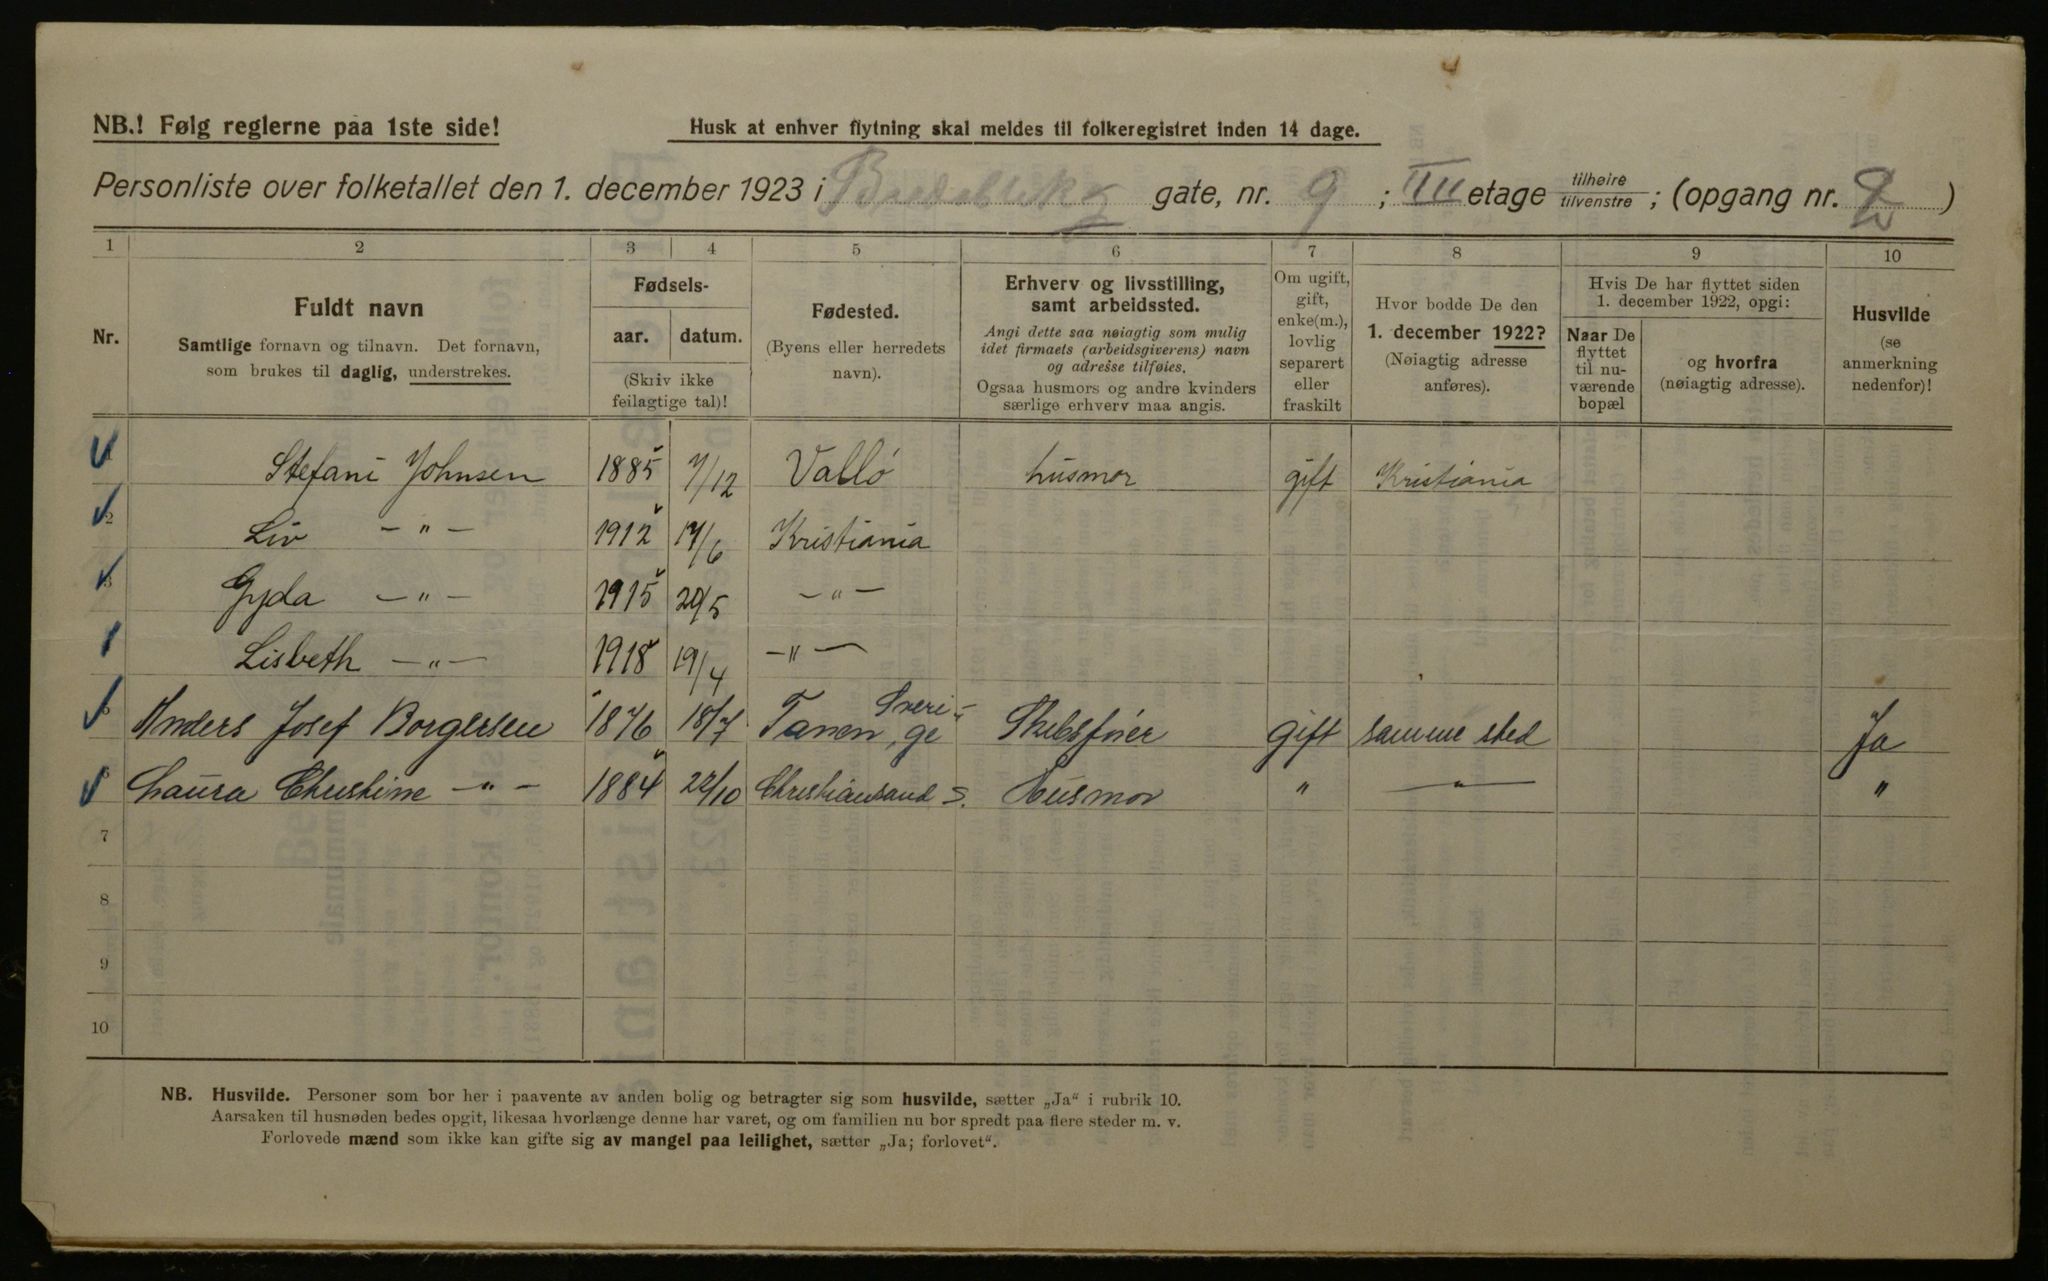 NB.! Følg reglerne paa 1ste side!
Husk at enhver flytning skal meldes til folkeregistret inden 14 dage.
Personliste over folketallet den 1. december 1923 i gate, nr. 9 ; III etage tilhøire tilvenstre ; (opgang nr. 2 )
1 2 3 4 5 6 7 8 9 10
Nr.
Fuldt navn
Samtlige fornavn og tilnavn. Det fornavn,
som brukes til daglig, understrekes.
Fødsels-
aar. datum.
(Skriv ikke
feilagtige tal)!
Fødested.
(Byens eller herredets
navn).
Erhverv og livsstilling,
samt arbeidssted.
Angi dette saa nøiagtig som mulig
idet firmaets (arbeidsgiverens) navn
og adresse tilføies.
Ogsaa husmors og andre kvinders
særlige erhverv maa angis.
Om ugift,
gift,
enke(m.),
lovlig
separert
eller
fraskilt
Hvor bodde De den
1. december 1922?
(Nøiagtig adresse
anføres).
Hvis De har flyttet siden
1. december 1922, opgi:
Naar De
flyttet
til nu-
værende
bopæl
og hvorfra
(nøiagtig adresse).
Husvilde
(se
anmerkning
nedenfor)!
Stefani Johnsen 1885 7/12 Valló husmor gift Kristiania
2 Liv — " — 1912 17/6 Kristiania
3 Gyda — " — 1915 20/5 — " —
Lisbeth — " — 1918 19/4 — " —
5 Anders Josef Borgersen 1876 18/7 Tanen, Sveri-ge Skibsfører gift samme sted Ja
6 Laura Christine — " — 1884 22/10 Christiansand S. Husmor " — " — "
7
8
9
10
NB. Husvilde. Personer som bor her i paavente av anden bolig og betragter sig som husvilde, sætter „Ja“ i rubrik 10.
Aarsaken til husnøden bedes opgit, likesaa hvorlænge denne har varet, og om familien nu bor spredt paa flere steder m. v.
Forlovede mænd som ikke kan gifte sig av mangel paa leilighet, sætter „Ja; forlovet“.